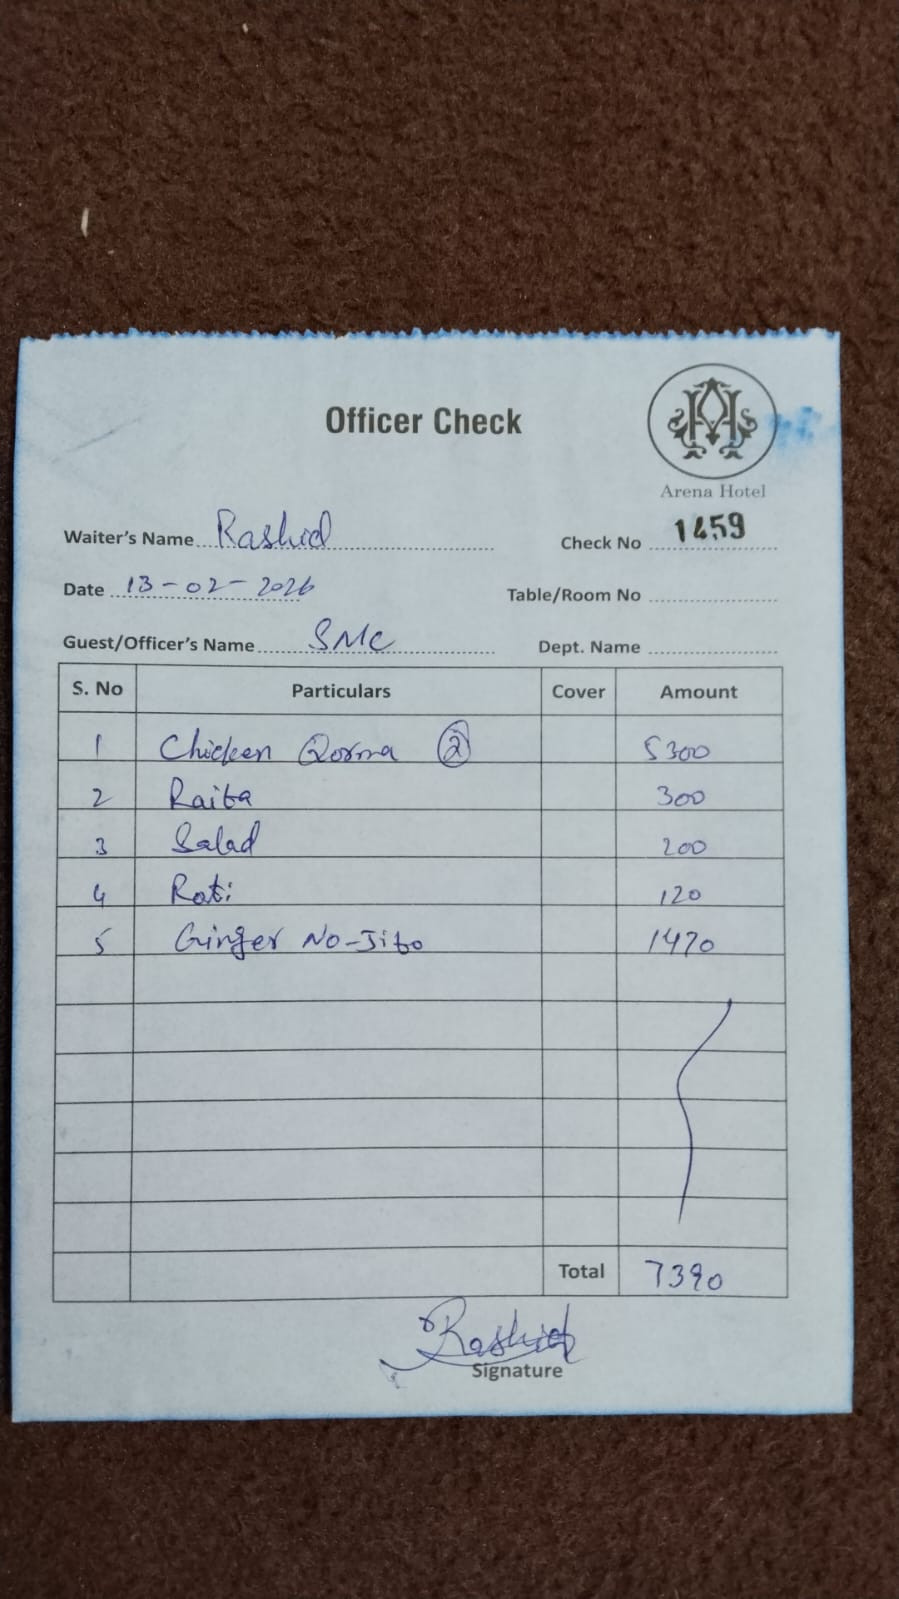 Officer Check
Arena Hotel
Waiter's Name Rashid Check No 1459
Date 13-02-2026 Table/Room No
Guest/Officer's Name SMC Dept. Name
S. No Particulars Cover Amount
1 Chicken Qorma 2 5300
2 Raita 300
3 Salad 200
4 Roti 120
5 Ginger No-Jito 1470
Total 7390
Rashid
Signature